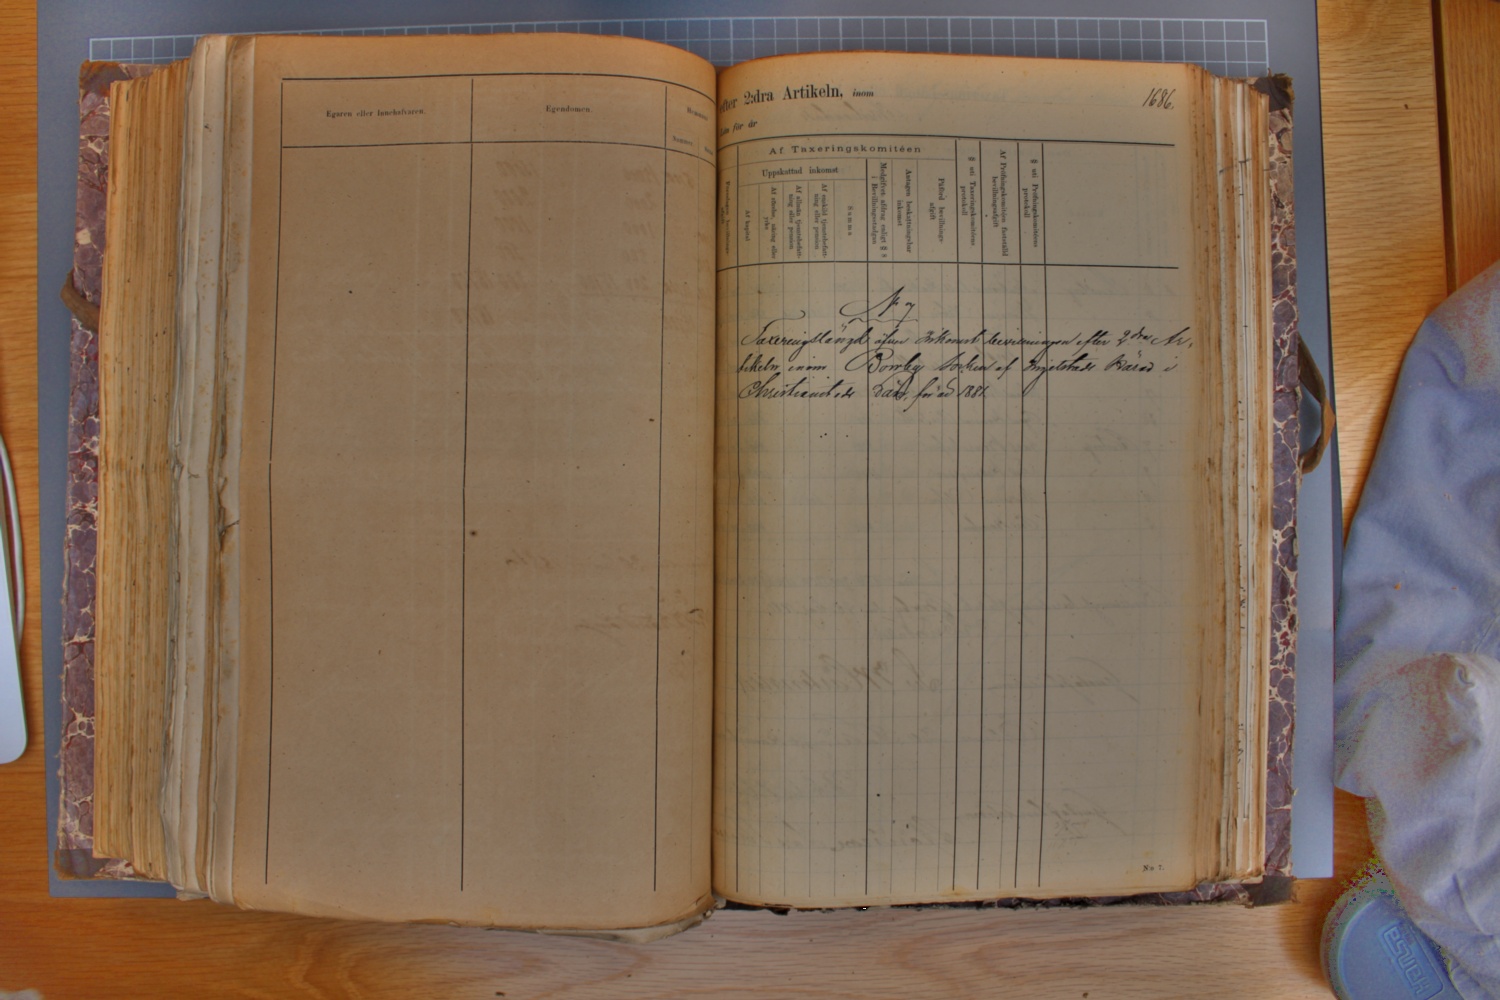 Egaren eller Innehafvaren.
Egendomen.
Hemman
Nummer.
efter 2:dra Artikeln, inom
1686.
Län för år
Af Taxeringskomitéen
Uppskattad inkomst
Af kapital
Af rörelse, näring eller yrke
Af allmän tjenstbefattning eller pension
Af enskild tjenstbefattning eller pension
Summa
Medgifven afdrag enligt § 8 i Bevillningsstadgan
Antagen beskattningsbar inkomst
Påförd bevillningsafgift
§ uti Taxeringskomiténs protokoll
Af Pröfningskomitén fastställd bevillningsafgift
§ uti Pröfningskomiténs protokoll
Taxeringslängd öfver Inkomst bevillningen efter 2dra Ar-
tikeln, inom Bomby Socken af Ingelstads Härad i
Christianstads Län, för år 1881.
N:o 7.